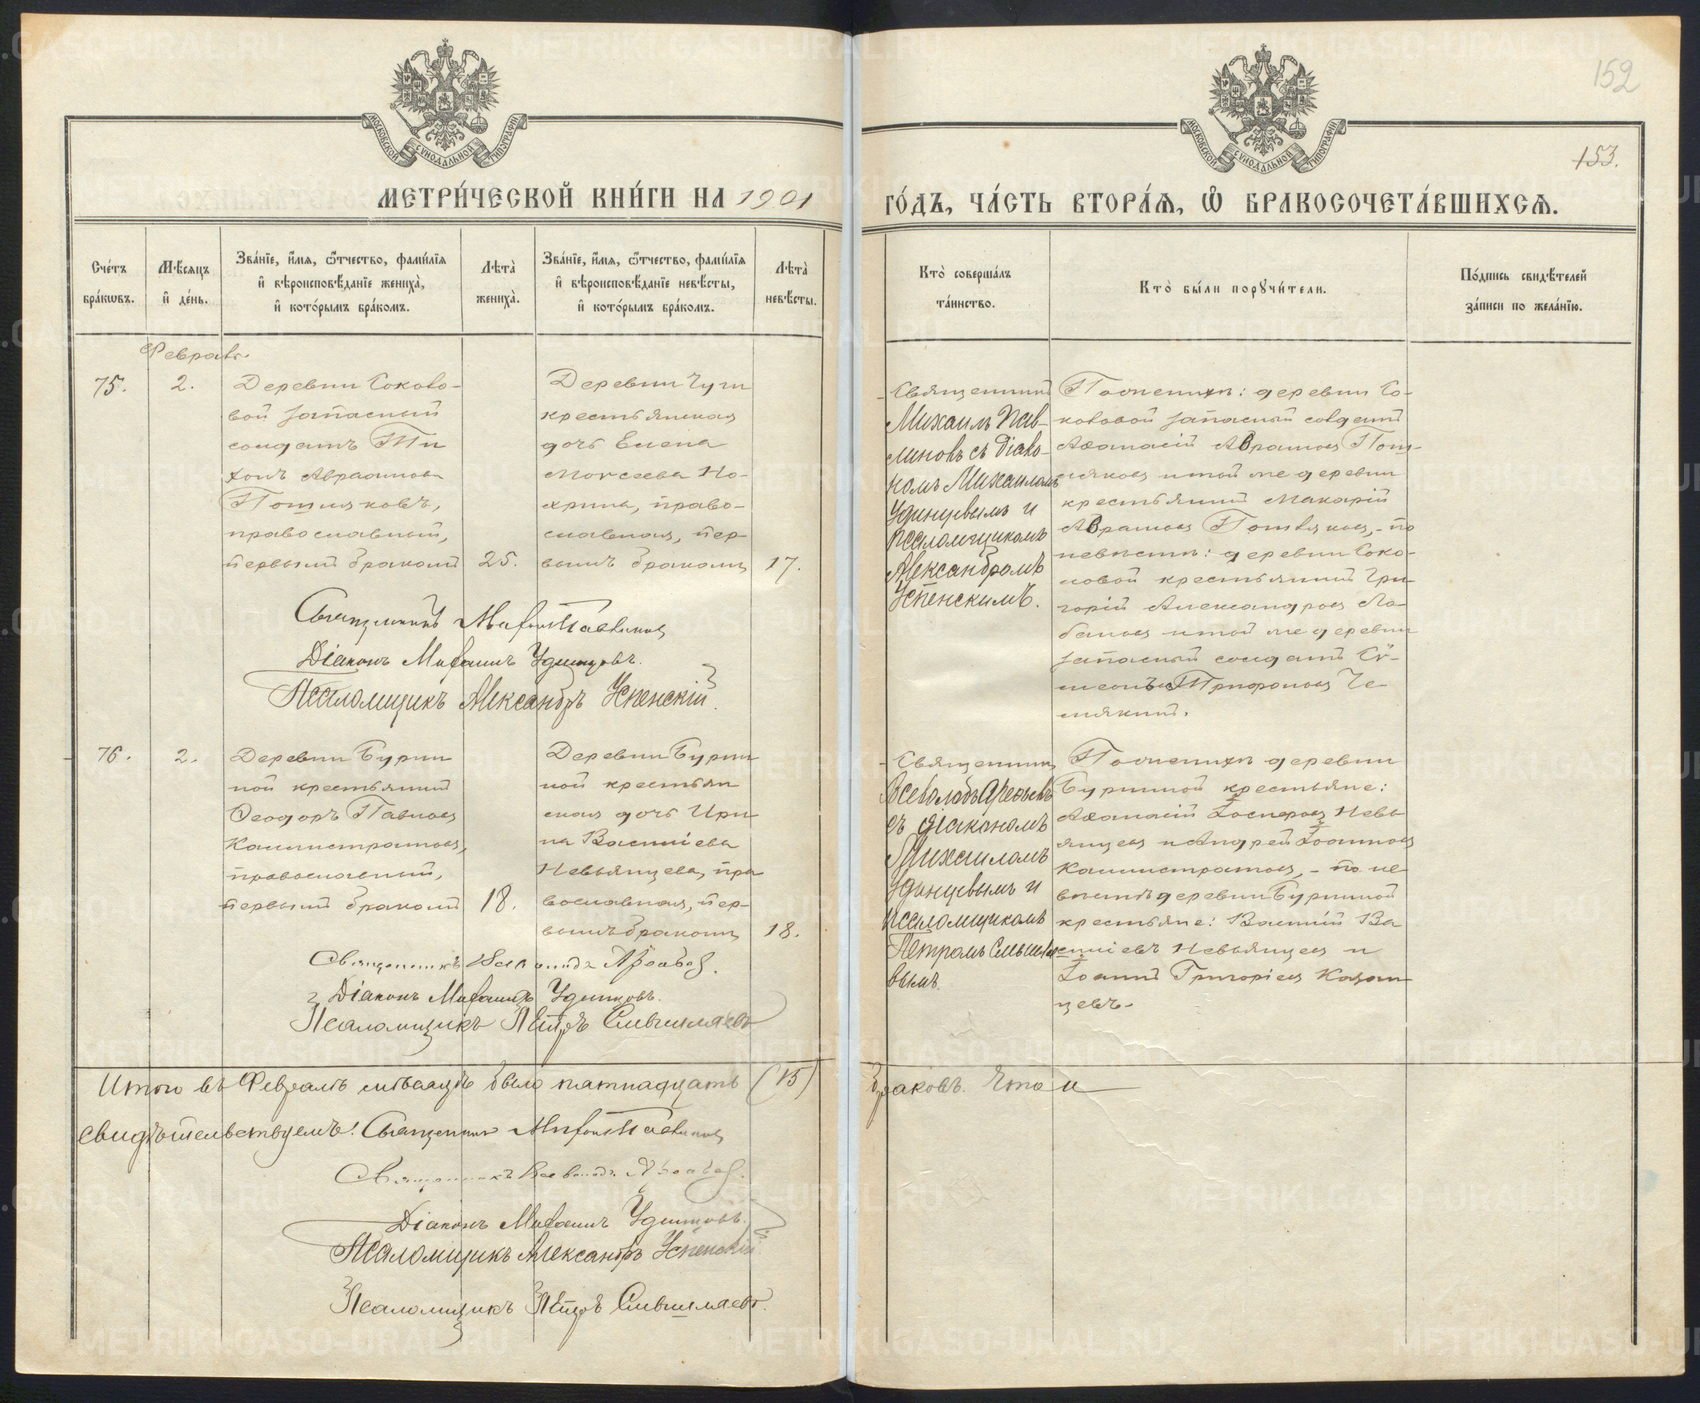 152
153.
МОСКОВСКОЙ СУНОДАЛЬНОЙ ТИПОГРАФІИ
МОСКОВСКОЙ СУНОДАЛЬНОЙ ТИПОГРАФІИ
МЕТРИ́ЧЕСКОЙ КНИ́ГИ НА 1901
ГО́ДЪ, ЧА́СТЬ ВТОРА́Ѧ, Ѽ БРАКОСОЧЕТА́ВШИХСѦ.
Сче́тъ
бра́кѡвъ.
Мѣсѧцъ
и҆ де́нь.
Зва́нїе, и҆́мѧ, ѻ҆́тчество, фами́лїѧ
и҆ вѣроисповѣ́данїе жениха̀,
и҆ кото́рымъ бра́комъ.
Лѣта̀
жениха̀.
Зва́нїе, и҆́мѧ, ѻ҆́тчество, фами́лїѧ
и҆ вѣроисповѣ́данїе невѣ́сты,
и҆ кото́рымъ бра́комъ.
Лѣта̀
невѣ́сты.
Кто̀ соверша́лъ
та́инство.
Кто̀ бы́ли порꙋчи́тели.
По́дпись свидѣ́телей
за́писи по жела́нїю.
Февраль.
75.
2.
Деревни Соколо-
вой запасный
солдатъ Ти
хонъ Авраамовъ
православный,
первымъ бракомъ
25.
Деревни Чуги
крестьянская
дочь Елена
Моисеева По-
православная, пер
вымъ бракомъ
17.
Священникъ
Михаилъ Пав-
линовъ съ діако-
номъ Михаиломъ
Удинцевымъ и
псаломщикомъ
Александромъ
Успенскимъ.
По женихѣ: деревни Со-
коловой запасный солдатъ
Аѳанасій Аврамовъ
и той же деревни
крестьянинъ Макарій
Аврамовъ - по
невѣстѣ: деревни Соко-
ловой крестьянинъ Гри-
горій Александровъ Ло-
бановъ и той же деревни
запасный солдатъ Сѵ-
меонъ Трифоновъ
Священникъ Мих. Павлиновъ
Діаконъ Михаилъ Удинцовъ.
Псаломщикъ Александръ Успенскій.
76.
2.
Деревни Бурми
ной крестьянинъ
Ѳеодоръ Павловъ
Калистратовъ,
православный,
первымъ бракомъ
18.
Деревни Бурми
ной крестьян
ская дочь Ири
на Василіева
Невьянцева, пра
вославная, пер-
вымъ бракомъ
18.
Священникъ
Всеволодъ Арефьевъ
съ діакономъ
Михаиломъ
Удинцевымъ и
псаломщикомъ
Петромъ
вымъ.
По женихѣ деревни
Бурминой крестьяне:
Аѳанасій Іосифовъ Невь
янцевъ и Андрей Іоанновъ
Калистратовъ, - по не
вѣстѣ деревни Бурминой
крестьяне: Василій Ва
силіевъ Невьянцевъ и
Іоаннъ Григоріевъ Казан
цевъ.
Священникъ Всеволодъ Арефьев.
Діаконъ Михаилъ Удинцовъ.
Псаломщикъ Петръ
Итого въ Февралѣ мѣсяцѣ было пятнадцать (15)
браковъ. Что и
свидѣтельствуемъ: Священникъ Мих. Павлиновъ
Священникъ Всеволодъ Арефьев.
Діаконъ Михаилъ Удинцовъ.
Псаломщикъ Александръ Успенскій
Псаломщикъ Петръ
METRIKI.GASO-URAL.RU